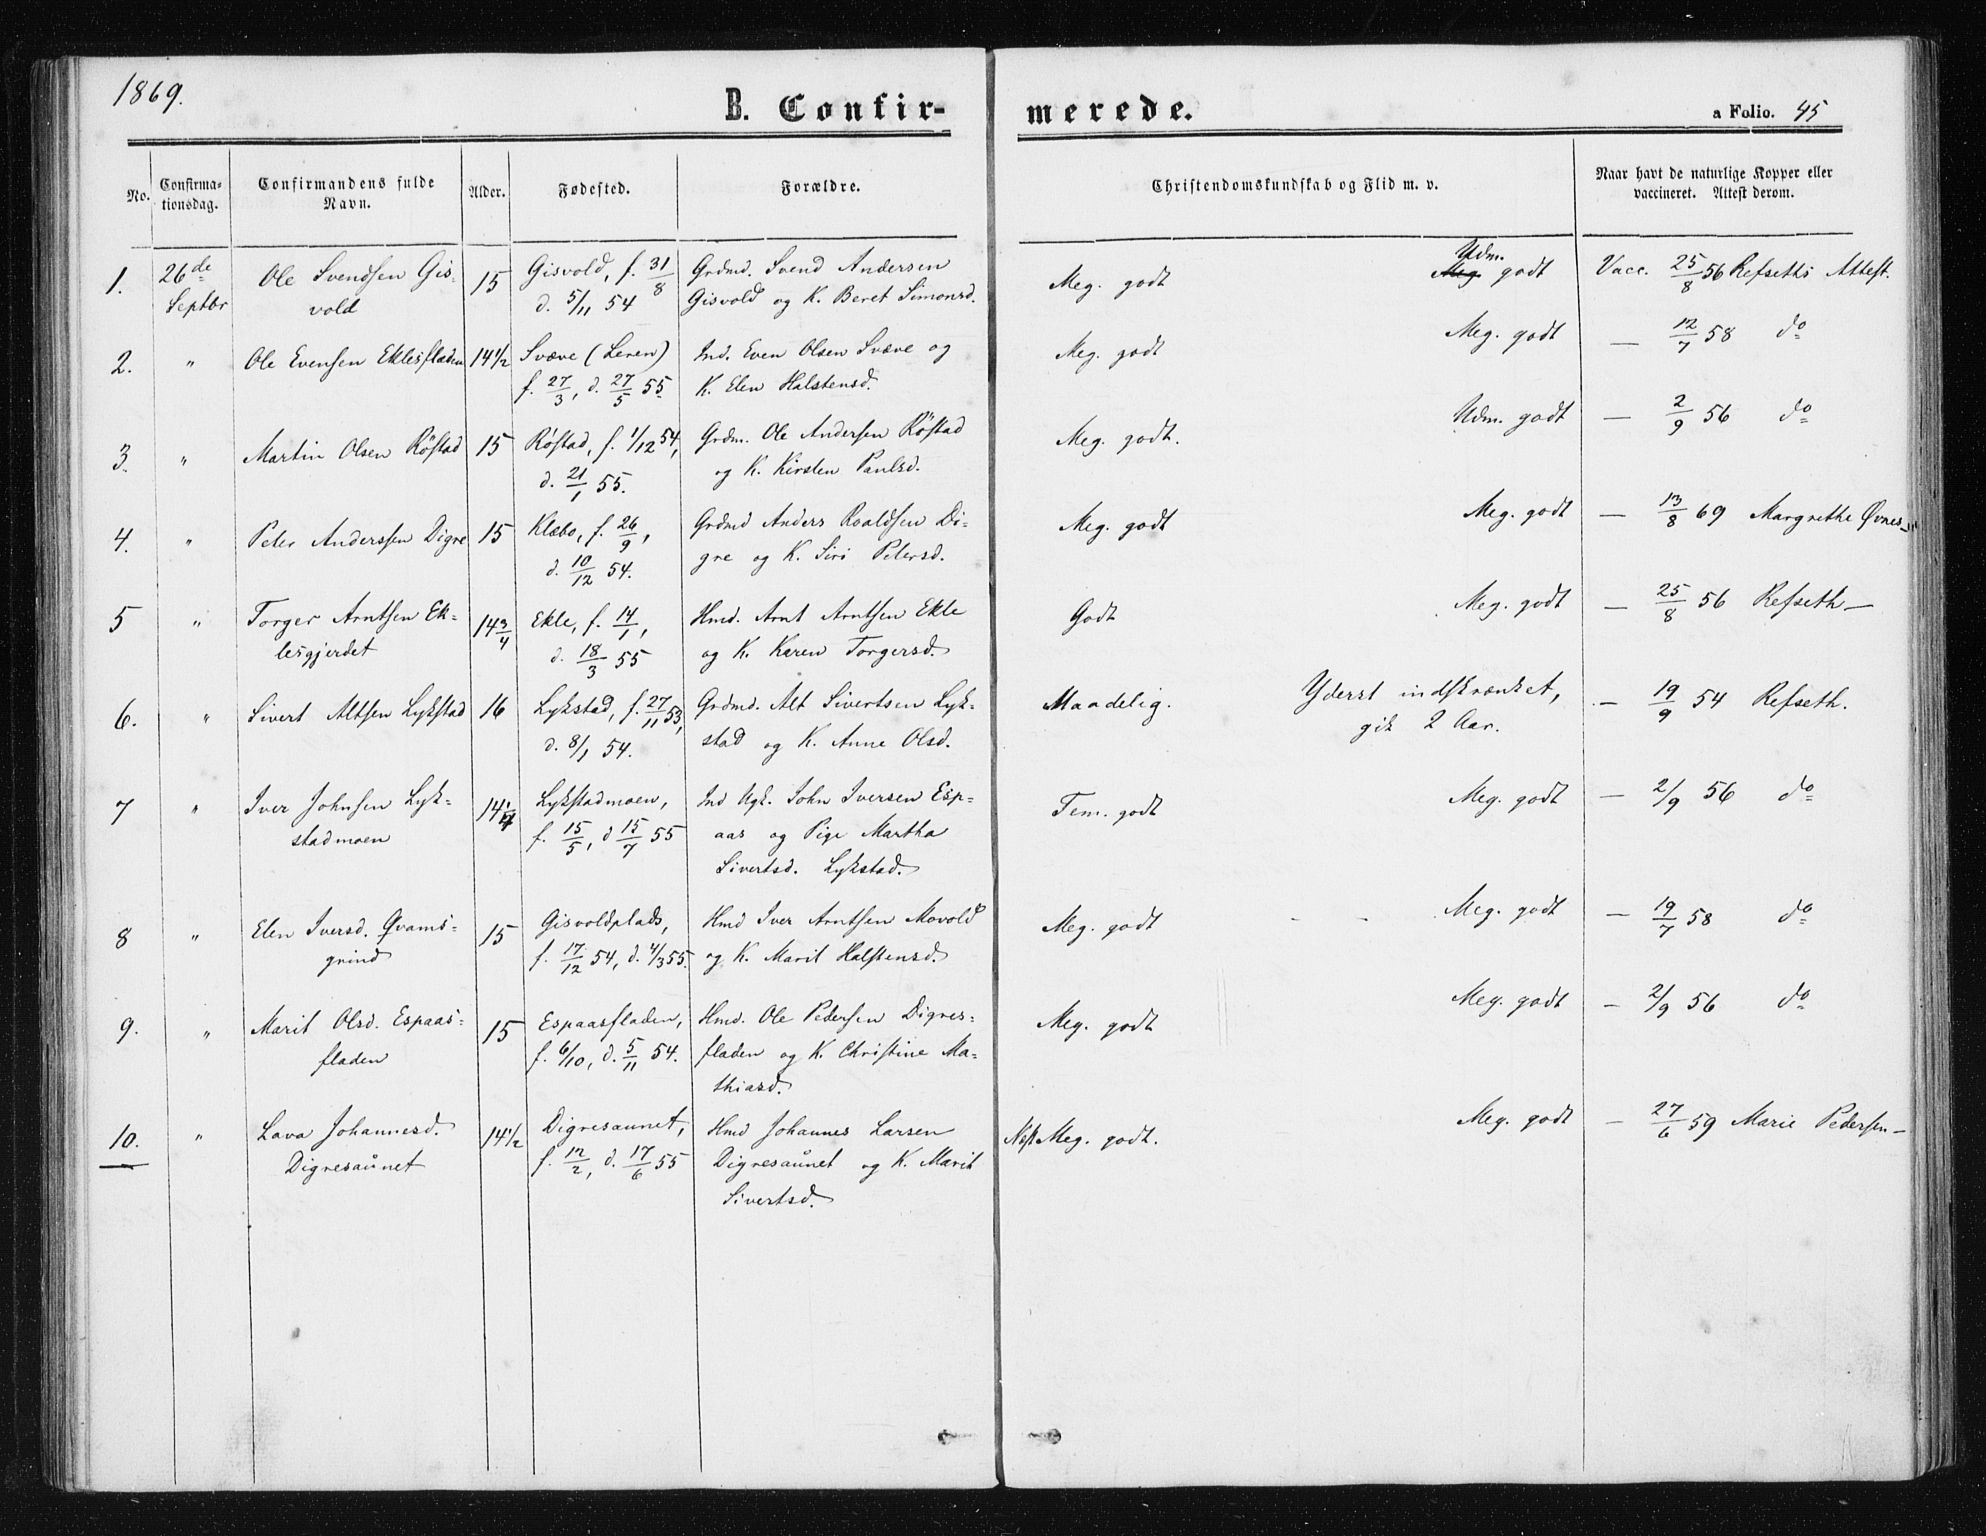 1869.
B. Confirmerede.
a Folio. 45
No.
Confirmationsdag.
Confirmandens fulde Navn.
Alder.
Fødested.
Forældre.
Christendomskundskab og Flid m. v.
Naar havt de naturlige Kopper eller vaccineret. Attest derom.
1. 26de Septbr Ole Svendsen Gisvold 15 Gisvold, f. 31/8 d. 5/11 54 Grdmd. Svend Andersen Gisvold og K. Beret Simonsd. Meg. godt Udm. godt Vacc. 25/8 56 Refseths Attest.
2. " Ole Evensen Eklesfladen 14 1/2 Svæve (Leren) f. 27/3, d. 27/5 55 Ind. Even Olsen Svæve og K. Elen Halstensd. Meg. godt Meg. godt — 12/7 58 do
3. " Martin Olsen Röstad 15 Röstad, f. 1/12 54, d. 21/1 55. Grdm. Ole Andersen Röstad og K. Kirsten Paulsd. Meg. godt. Udm. godt — 2/9 56 do
4. " Peter Anderssen Digre 15 Klæbo, f. 26/9, d. 10/12 54. Grdmd Anders Roaldsen Digre og K. Siri Petersd. Meg. godt Meg. godt — 13/8 69 Margrethe Øvnes—
5 " Torger Arntsen Eklesgjerdet 14 3/4 Ekle, f. 14/1, d. 18/3 55 Hmd. Arnt Arntsen Ekle og K. Karen Torgersd. Godt Meg. godt — 25/8 56 Refseth—
6. " Sivert Altsen Lykstad 16 Lykstad, f. 27/11 53, d. 8/1 54. Grdmd. Alt Sivertsen Lykstad og K. Anne Olsd. Maadelig. Yderst indskrænket, gik 2 Aar. — 19/9 54 Refseth.
7 " Iver Johnsen Lykstadmoen 14 1/4 Lykstadmoen, f. 15/5, d 15/7 55 Ind Ugk. John Iversen Espaas og Pige Martha Sivertsd. Lykstad. Tem. godt Meg. godt — 2/9 56 do
8 " Elen Iversd. Qvamsgrind 15 Gisvoldplads, f. 17/12 54, d. 4/3 55. Hmd Iver Arntsen Movold og K. Marit Halstensd. Meg. godt Meg. godt — 19/7 58 do
9. " Marit Olsd. Espaasfladen 15 Espaasfladen, f. 6/10, d. 5/11 54. Hmd. Ole Pedersen Digresfladen og K. Christine Mathiasd. Meg. godt Meg. godt — 2/9 56 do
10. " Lava Johannesd. Digresaunet 14 1/2 Digresaunet, f. 12/2, d. 17/6 55 Hmd Johannes Larsen Digresaunet og K. Marit Sivertsd. Meg. godt. Meg. godt — 27/6 59 Marie Pedersen—